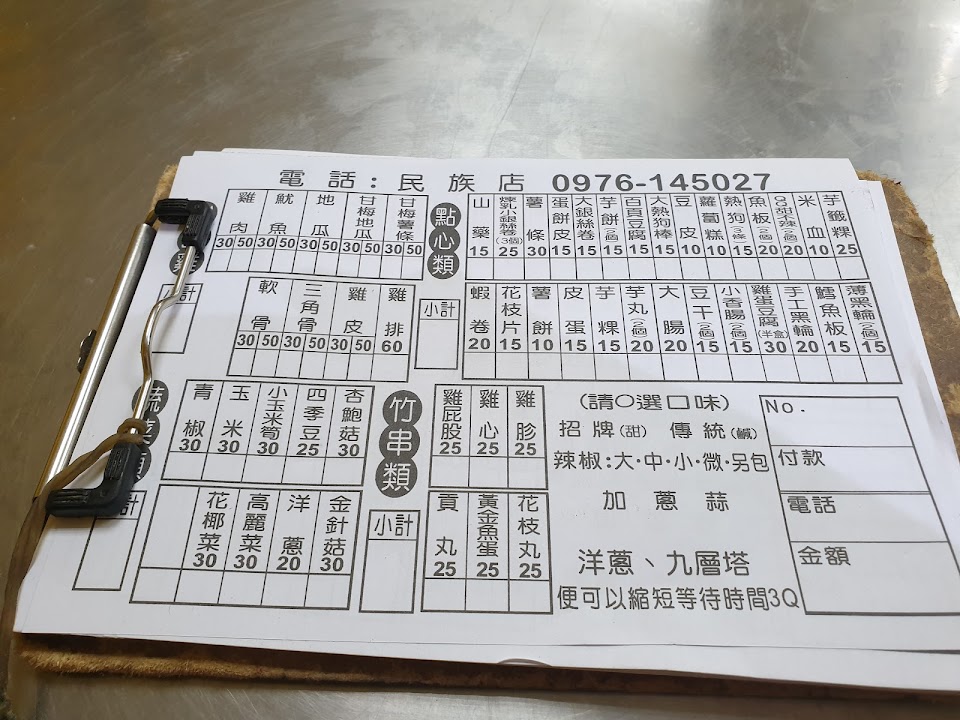 電話:民族店 0976-145027
雞肉 30 50
魷魚 30 50
地瓜 30 50
甘梅地瓜 30 50
甘梅薯條 30 50
點心類
山藥 15
煉乳小銀絲卷(3個) 25
薯條 30
蛋餅皮 15
大銀絲卷 15
芋餅(2個) 15
百頁豆腐 15
大熱狗棒 15
豆皮 10
蘿蔔糕 10
熱狗(3條) 15
魚板(2個) 20
QQ甜不辣(2個) 20
米血 10
芋籤粿 25
小計
軟骨 30 50
三角骨 30 50
雞皮 30 50
雞排 60
小計
蝦卷 20
花枝片 15
薯餅 10
皮蛋 15
芋粿 15
芋丸(2個) 20
大腸 20
豆干(2個) 15
小香腸(2個) 15
雞蛋豆腐(半盒) 30
手工黑輪 20
鱈魚板 15
薄黑輪(2個) 15
青椒 30
玉米 30
小玉米筍 30
四季豆 25
杏鮑菇 30
竹串類
雞屁股 25
雞心 25
雞胗 25
計
花椰菜 30
高麗菜 30
洋蔥 20
金針菇 30
小計
貢丸 25
黃金魚蛋 25
花枝丸 25
(請○選口味)
招牌(甜) 傳統(鹹)
辣椒:大·中·小·微·另包
加 蔥 蒜
洋蔥、九層塔
便可以縮短等待時間3Q
No.
付款
電話
金額